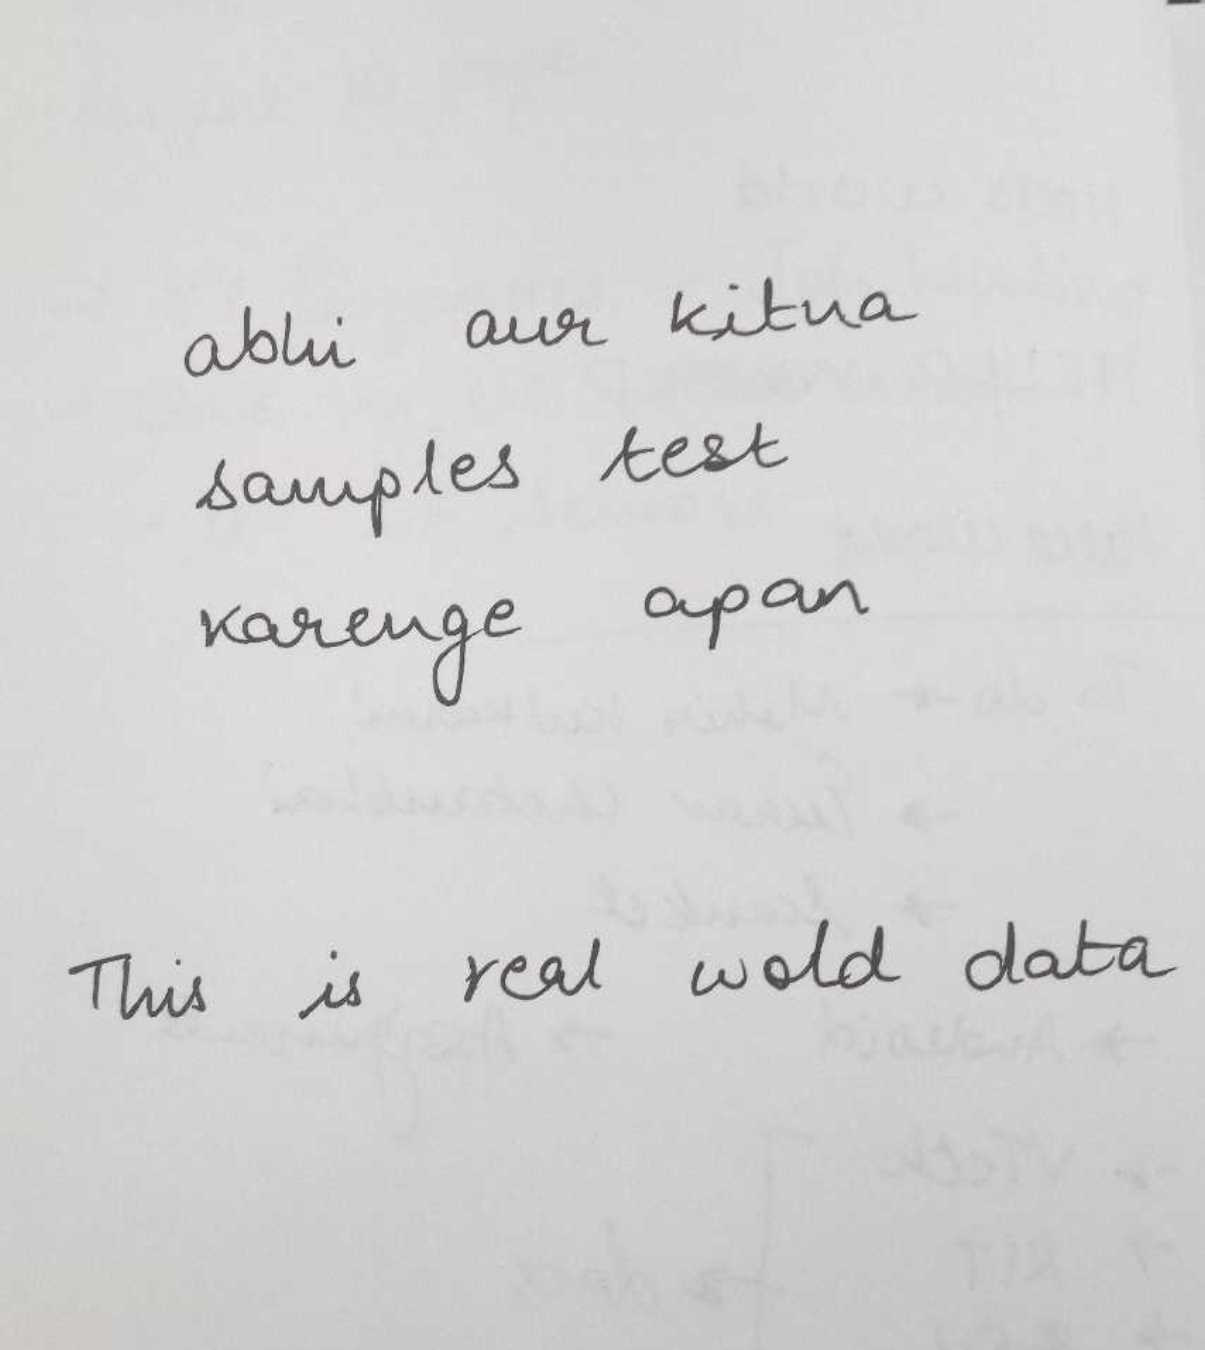 abhi aur kitna
samples test
karenge apan
This is real wold data